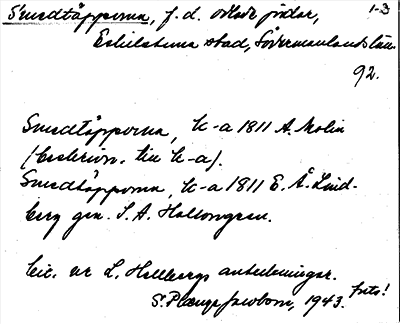 Smedtäpporna, f.d. odlade jordar, 1-3
Eskilstuna stad, Södermanlands län.
92.
Smedtäpporna, k-a 1811 A. Molin
(beskrivn. till k-a).
Smedtäpporna, k-a 1811 E. Å. Lind-
berg gm. S. A. Hallongren.
cit. ur L. Hellbergs anteckningar.
S. 1943. forts!